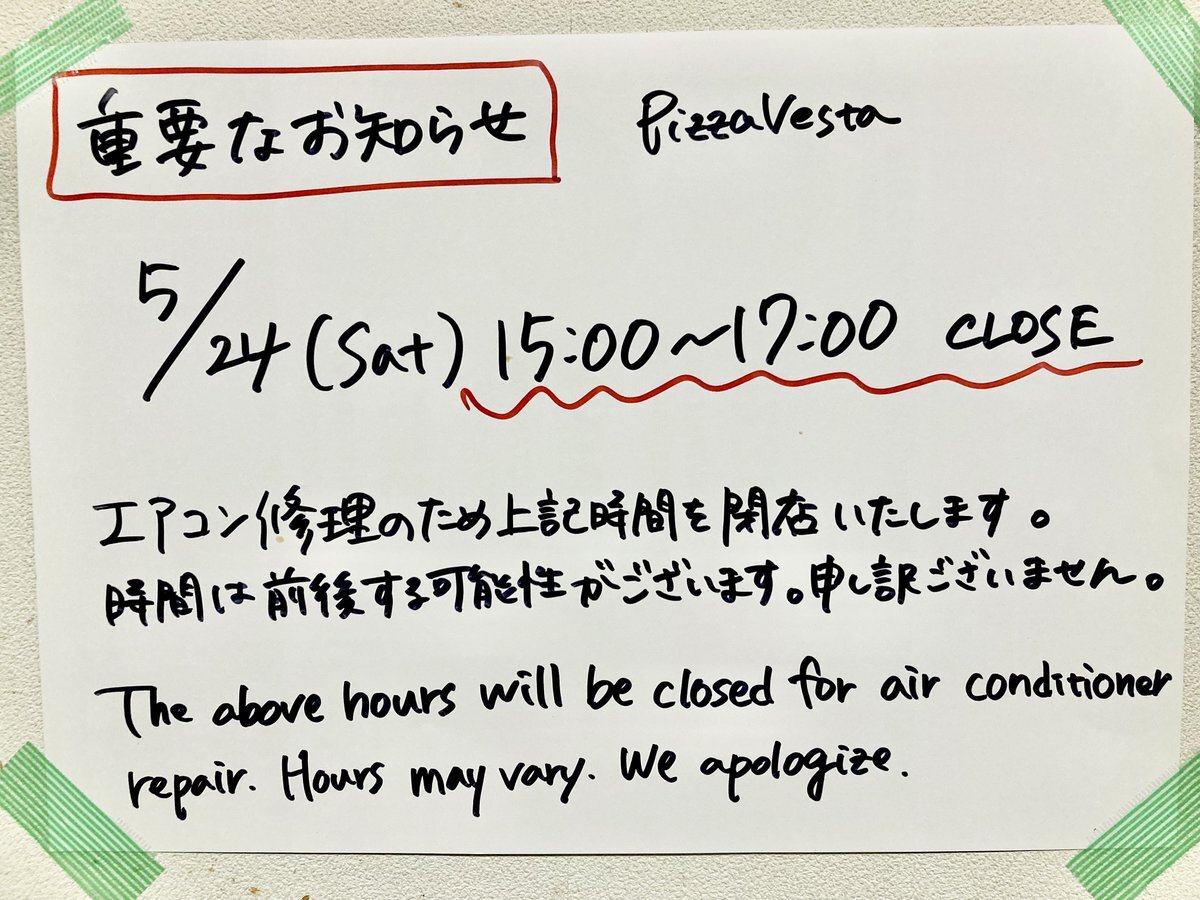 重要なお知らせ PizzaVesta
5/24(Sat) 15:00~17:00 CLOSE
エアコン修理のため上記時間を閉店いたします。
時間は前後する可能性がございます。申し訳ございません。
The above hours will be closed for air conditioner
repair. Hours may vary. We apologize.